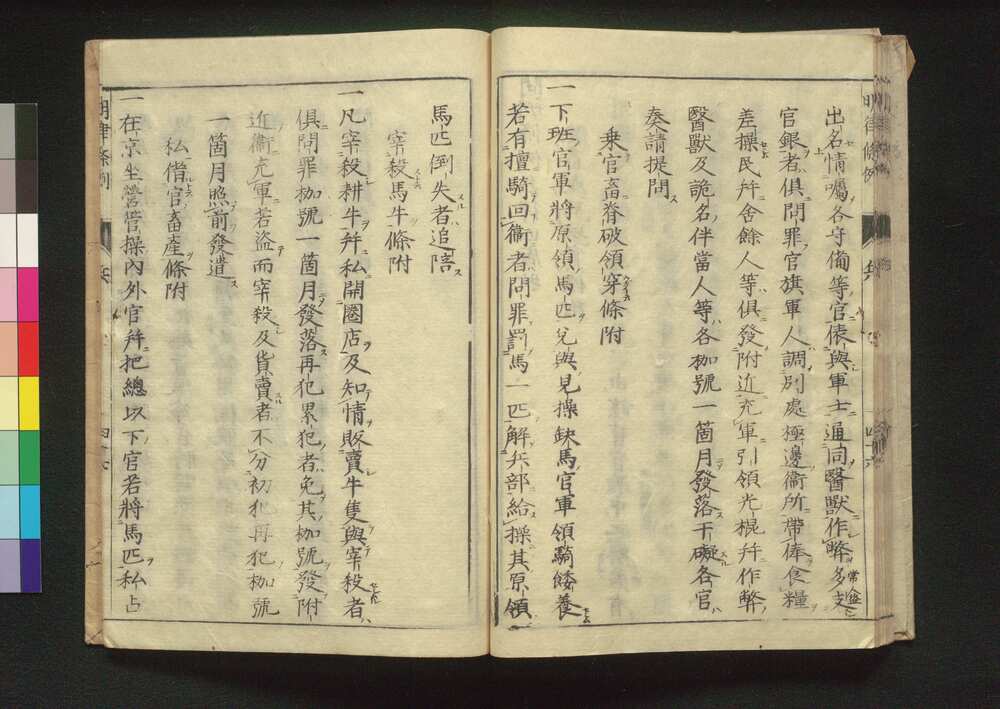 出名情囑各守備等官俵與軍士通同醫獸作弊多支
官銀者俱問罪官旗軍人調別處極邊衛所帶俸食糧
差操民并舍餘人等俱發附近充軍引領光棍并作弊
醫獸及詭名伴當人等各枷號一箇月發落干礙各官
奏請提問
乗官畜脊破領穿條附
一下班官軍將原領馬匹兌與見操缺馬官軍領騎餧養
若有擅騎回衞者問罪罰馬一匹解兵部給操其原領
馬匹倒失者追陪
宰殺馬牛條附
一凡宰殺耕牛并私開圈店及知情販賣牛隻與宰殺者
俱問罪枷號一箇月發落再犯累犯者免其枷號發附
近衞充軍若盜而宰殺及貨賣者不分初犯再犯枷號
一箇月照前發遣
私借官畜產條附
一在京坐營管操內外官并把總以下官若將馬匹私占
明律條例 兵